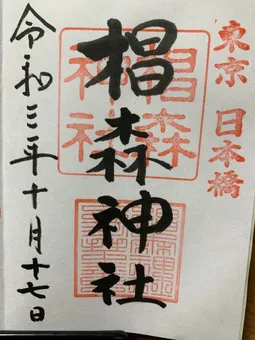 東京 日本橋
椙森神社
椙森神社
令和三年十月十七日